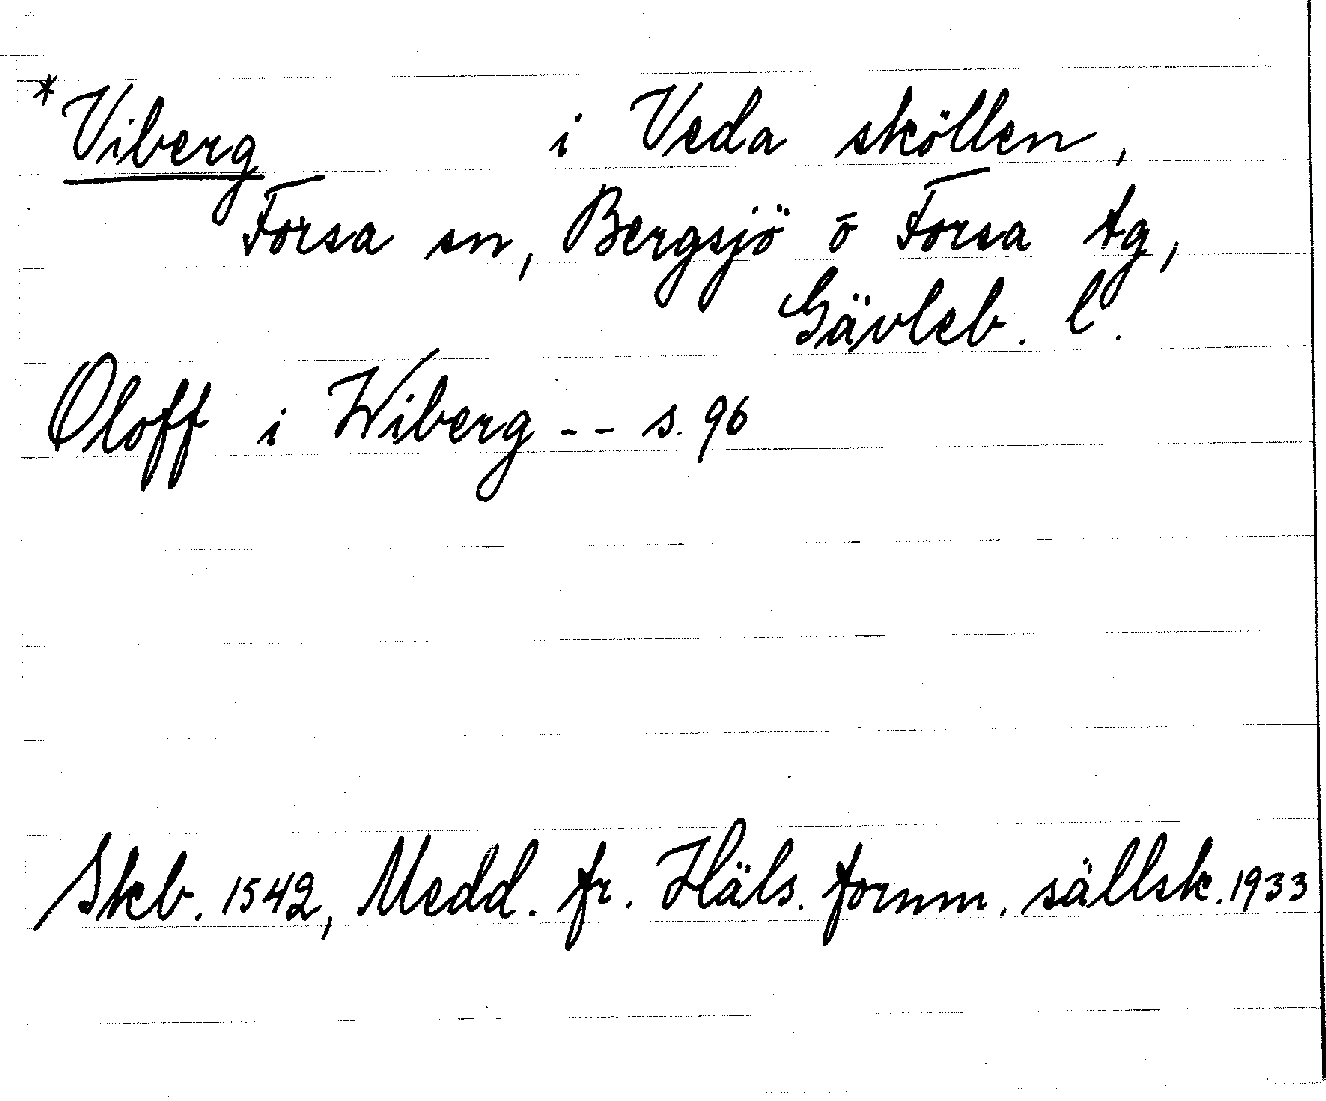 *Viberg i Veda sköllen,
Forsa sn, Bergsjö o Forsa tg,
Gävleb. l.
Oloff i Wiberg -- s. 96
Skb. 1542, Medd. fr. Häls. fornm. sällsk. 1933